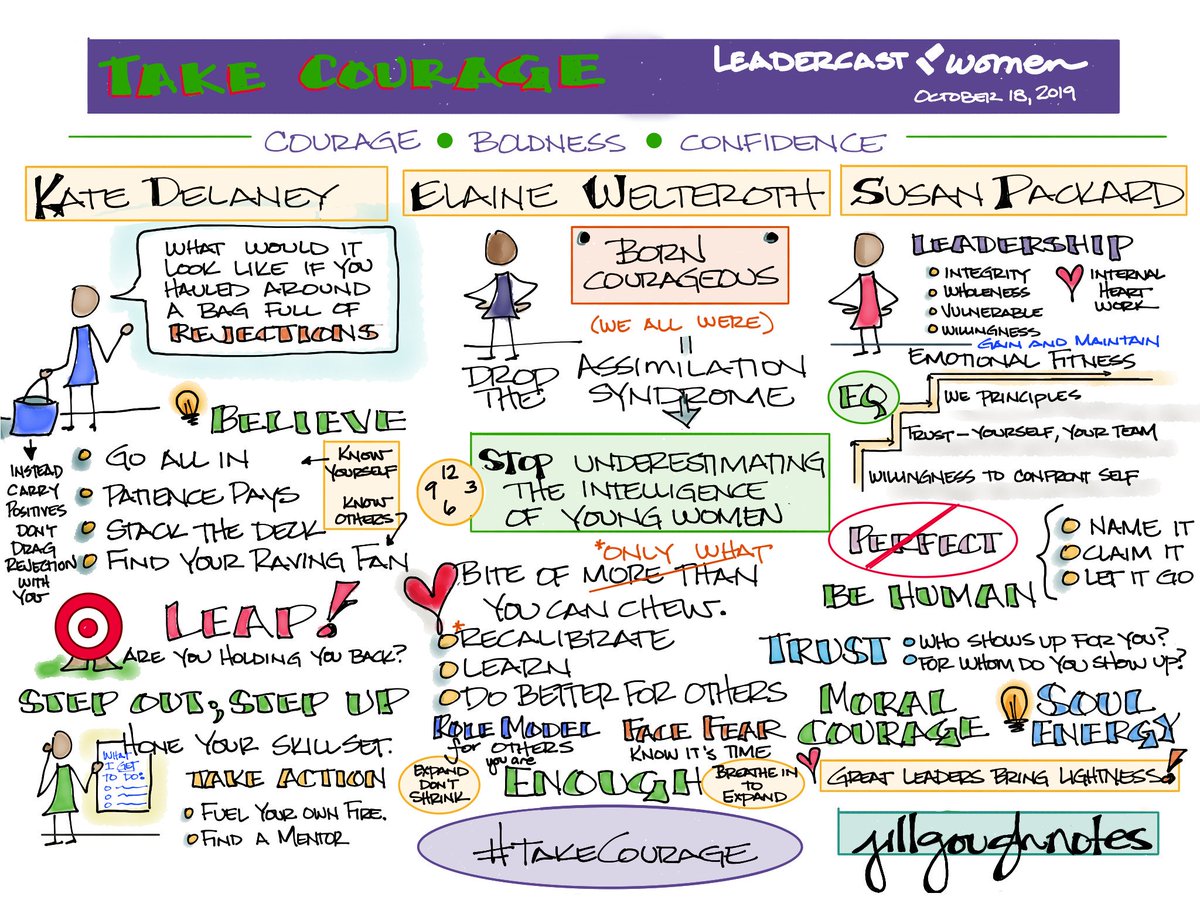 TAKE COURAGE
LEADERCAST women
OCTOBER 18, 2019
COURAGE • BOLDNESS • CONFIDENCE
KATE DELANEY
WHAT WOULD IT
LOOK LIKE IF YOU
HAULED AROUND
A BAG FULL OF
REJECTIONS
INSTEAD
CARRY
POSITIVES
DON'T
DRAG
REJECTION
WITH
YOU
BELIEVE
GO ALL IN
PATIENCE PAYS
STACK THE DECK
FIND YOUR RAVING FAN
KNOW
YOURSELF
KNOW
OTHERS?
LEAP!
ARE YOU HOLDING YOU BACK?
STEP OUT; STEP UP
HONE YOUR SKILLSET.
WHAT
I GET
TO DO:
TAKE ACTION
FUEL YOUR OWN FIRE.
FIND A MENTOR
ELAINE WELTEROTH
BORN
COURAGEOUS
(WE ALL WERE)
DROP
THE
ASSIMILATION
SYNDROME
12
9 3
6
STOP UNDERESTIMATING
THE INTELLIGENCE
OF YOUNG WOMEN
*ONLY WHAT
BITE OF MORE THAN
YOU CAN CHEW.
*RECALIBRATE
LEARN
DO BETTER FOR OTHERS
ROLE MODEL
for OTHERS
FACE FEAR
KNOW IT'S TIME
you are
ENOUGH
EXPAND
DON'T
SHRINK
BREATHE IN
TO
EXPAND
#TAKECOURAGE
SUSAN PACKARD
LEADERSHIP
INTEGRITY
WHOLENESS
VULNERABLE
WILLINGNESS
INTERNAL
HEART
WORK
GAIN AND MAINTAIN
EMOTIONAL FITNESS
EQ
WE PRINCIPLES
TRUST-YOURSELF, YOUR TEAM
WILLINGNESS TO CONFRONT SELF
PERFECT
BE HUMAN
NAME IT
CLAIM IT
LET IT GO
TRUST
WHO SHOWS UP FOR YOU?
FOR WHOM DO YOU SHOW UP?
MORAL
COURAGE
SOUL
ENERGY
GREAT LEADERS BRING LIGHTNESS!
jillgoughnotes